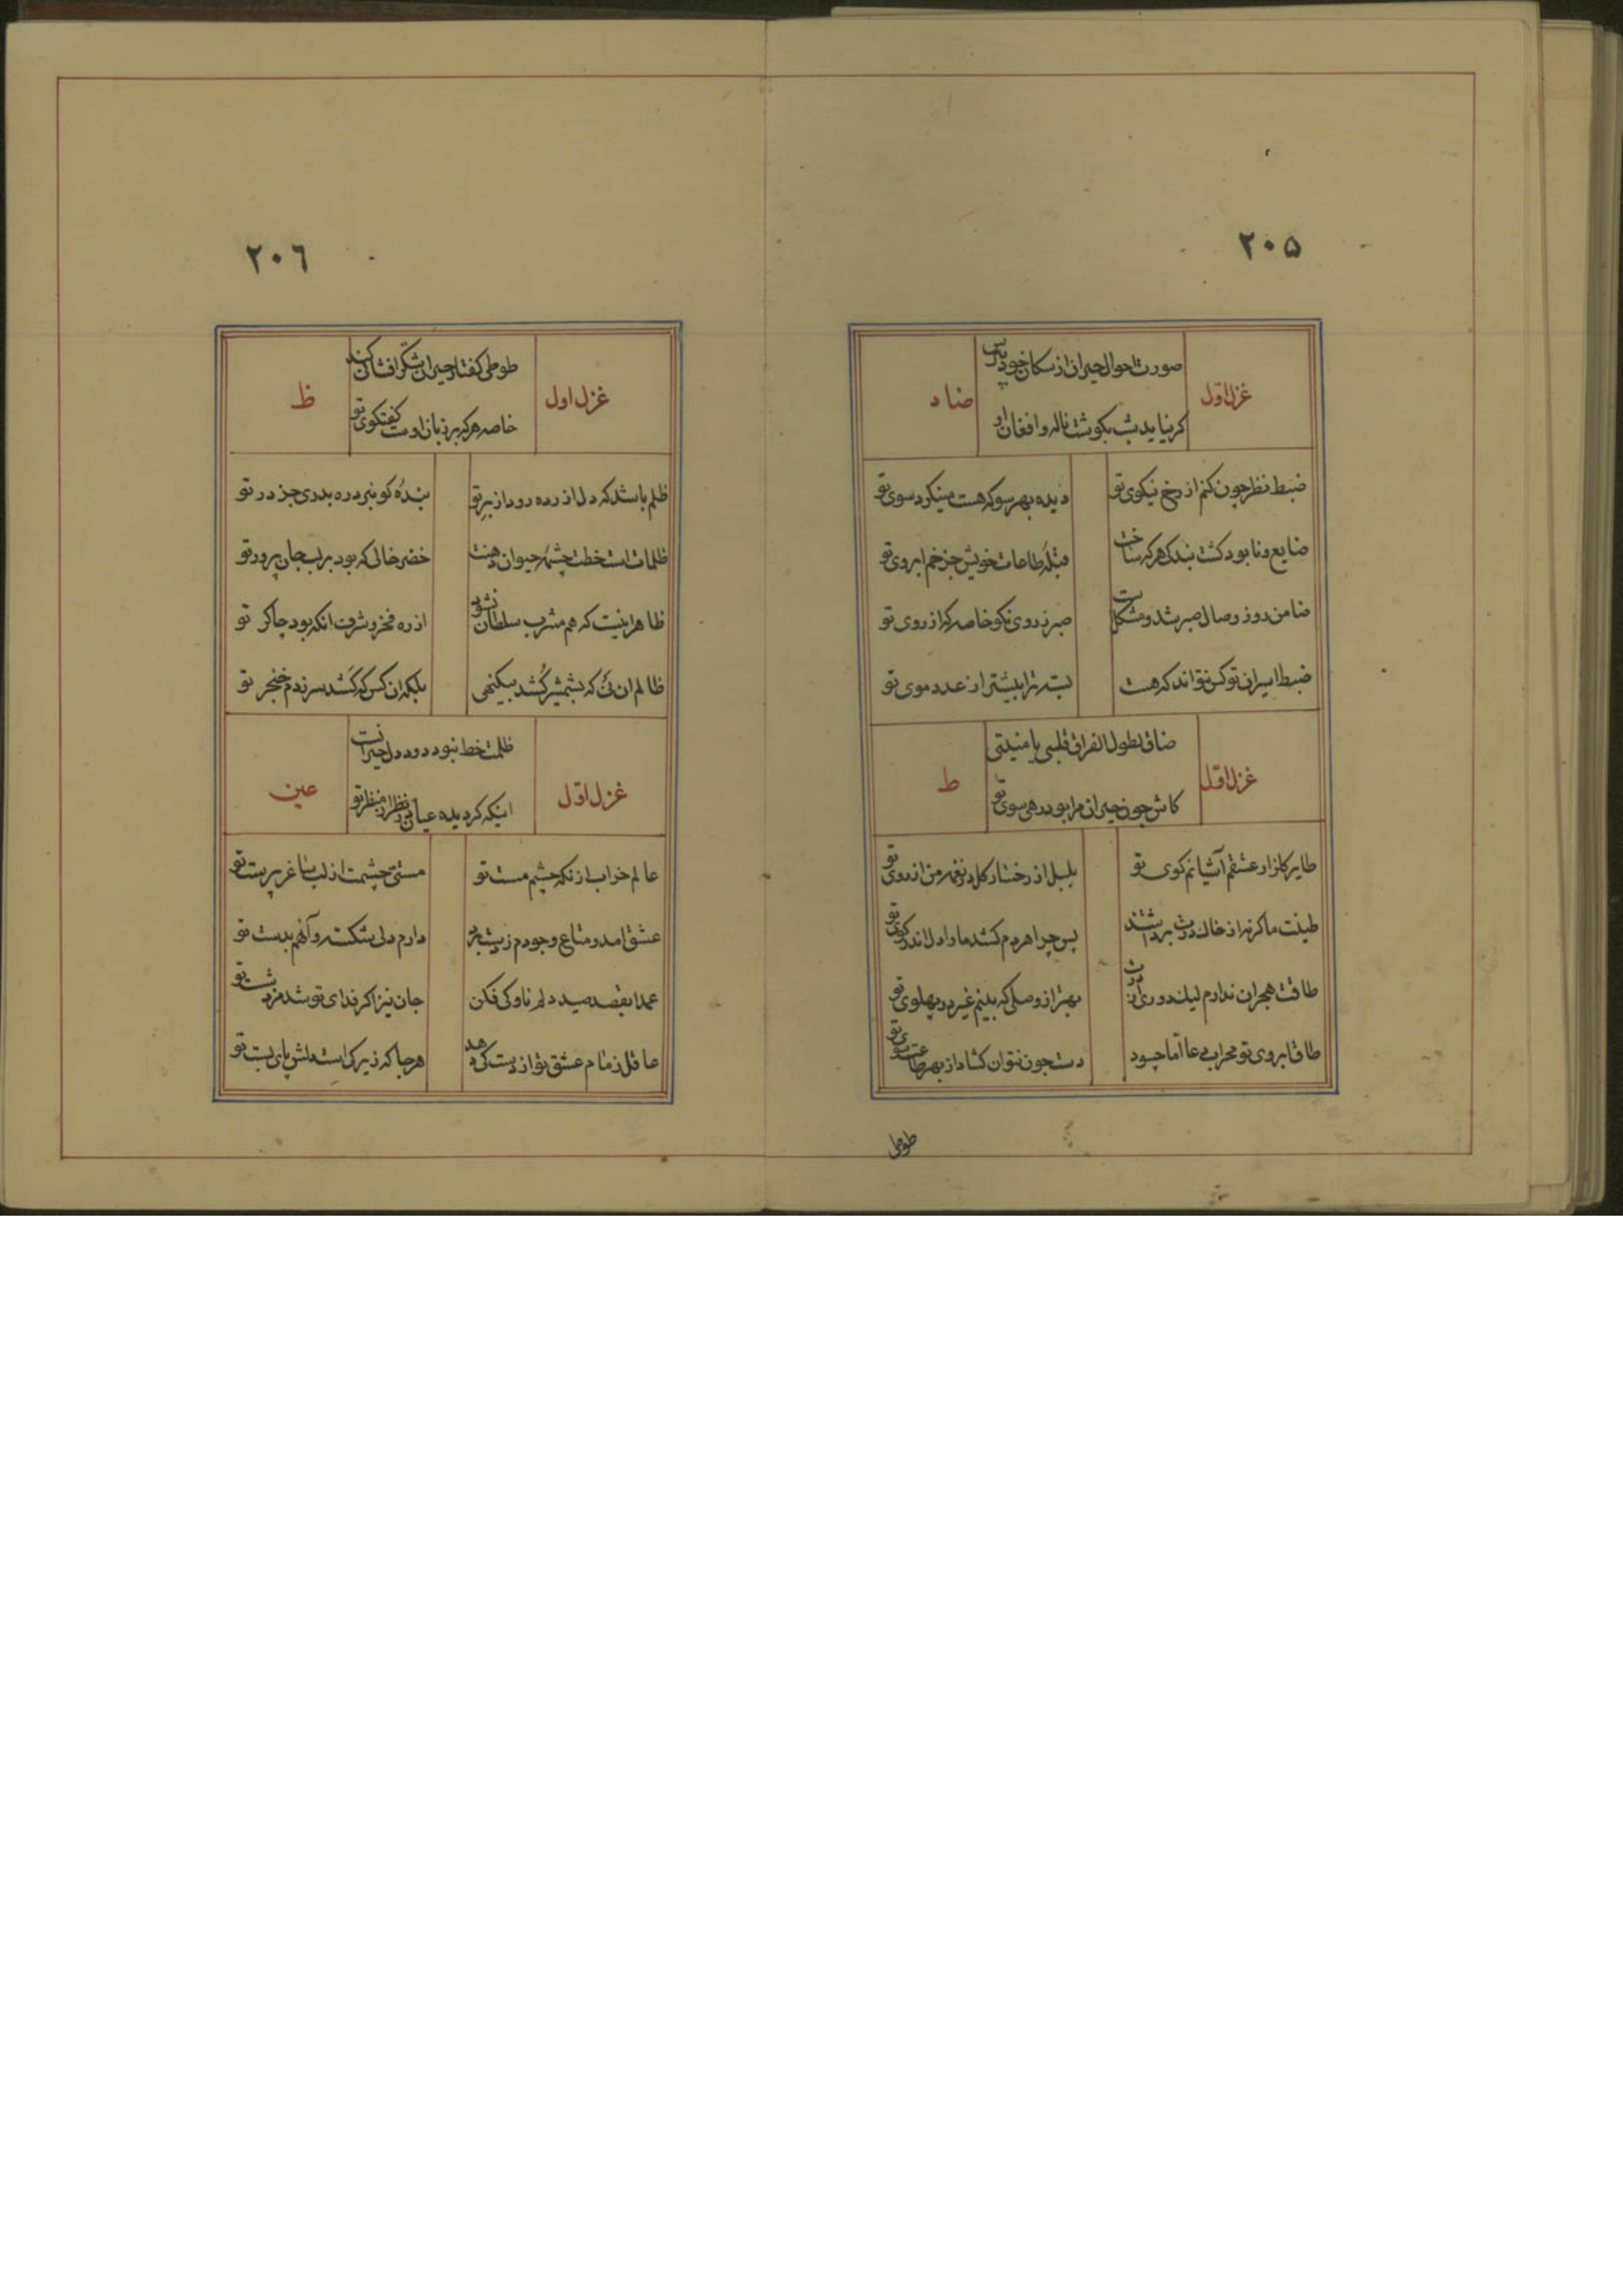 ٢٠٥
غزل اوّل
صورت احوال حیران از سکان خود بپرس
کر نیاید شب بکوشت ناله و افغان او
ضاد
ضبط نظر چون کنم از رخ نیکوی تو
دیده بهر سو که هست مینکرد سوی تو
ضایع و نابود کشت بندکی هر که ساخت
قبلهٔ طاعات خویش جز خم ابروی تو
ضامن روز وصال صبر شد و مشکل است
صبر ز روی نکو خاصه که از روی تو
ضبط اسیران تو کس نتواند که هست
بسته ترا بیشتر از عدد موی تو
غزل اوّل
ضاق بطول الفراق قلبی یا منیتی
کاش چون حیران مرا بود رهی سوی تو
ط
طایر کلزار عشقم آشیانم کوی تو
بلبل از رخسار کل در نغمه من از روی تو
طینت ما کر نه از خاک درت برداشتند
پس چرا هر دم کشد ما را دل اندر کوی تو
طاقت هجران ندارم لیک دوری از درت
بهتر از وصلی که بینم غیر در پهلوی تو
طاق ابروی تو محراب دعا امّا چسود
دست چون نتوان کشاد از بهر طاعت سوی تو
طوطی
٢٠٦
غزل اول
طوطی کفتار حیران شکّر افشانی کند
خاصه هرکه بر زبان اوست کفتکوی تو
ظ
ظلم باشد که دل ازرده رود از بر تو
بندهٔ کو نبرد ره بدری جز در تو
ظلمات است خطت چشمه حیوان دهنت
خضر خالی که بود بر لب جان پرور تو
ظاهر اینست که هم مشرب سلطان نشود
از ره فخر و شرف انکه بود چاکر تو
ظالم ان نی که بشمشیر کُشد بیکنهی
بلکه ان کس که کَشد سر ز دم خنجر تو
غزل اوّل
ظلمت خط نبود دود دل حیرانست
اینکه کردیده عیان در نظر از منظر تو
عین
عالم خراب از نکه چشم مست تو
مستی چشمت از لب ساغر پرست تو
عشق امد و متاع وجودم ز پیش برد
دارم دلی شکسته و آنهم بدست تو
عمدا بقصد صید دلم ناوکی فکن
جان نیز اکر فدای تو شد مزد شست تو
عاقل زمام عشق تو از دست کی دهد
هرجا که زیرکی است دلش پای بست تو